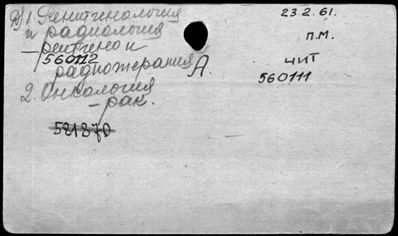 1. Рентгенология
и радиология
– рентгено и
560112
радиотерапия
2. Онкология
– рак.
521370
А.
23.2.61.
П.М.
ЧИТ
560111